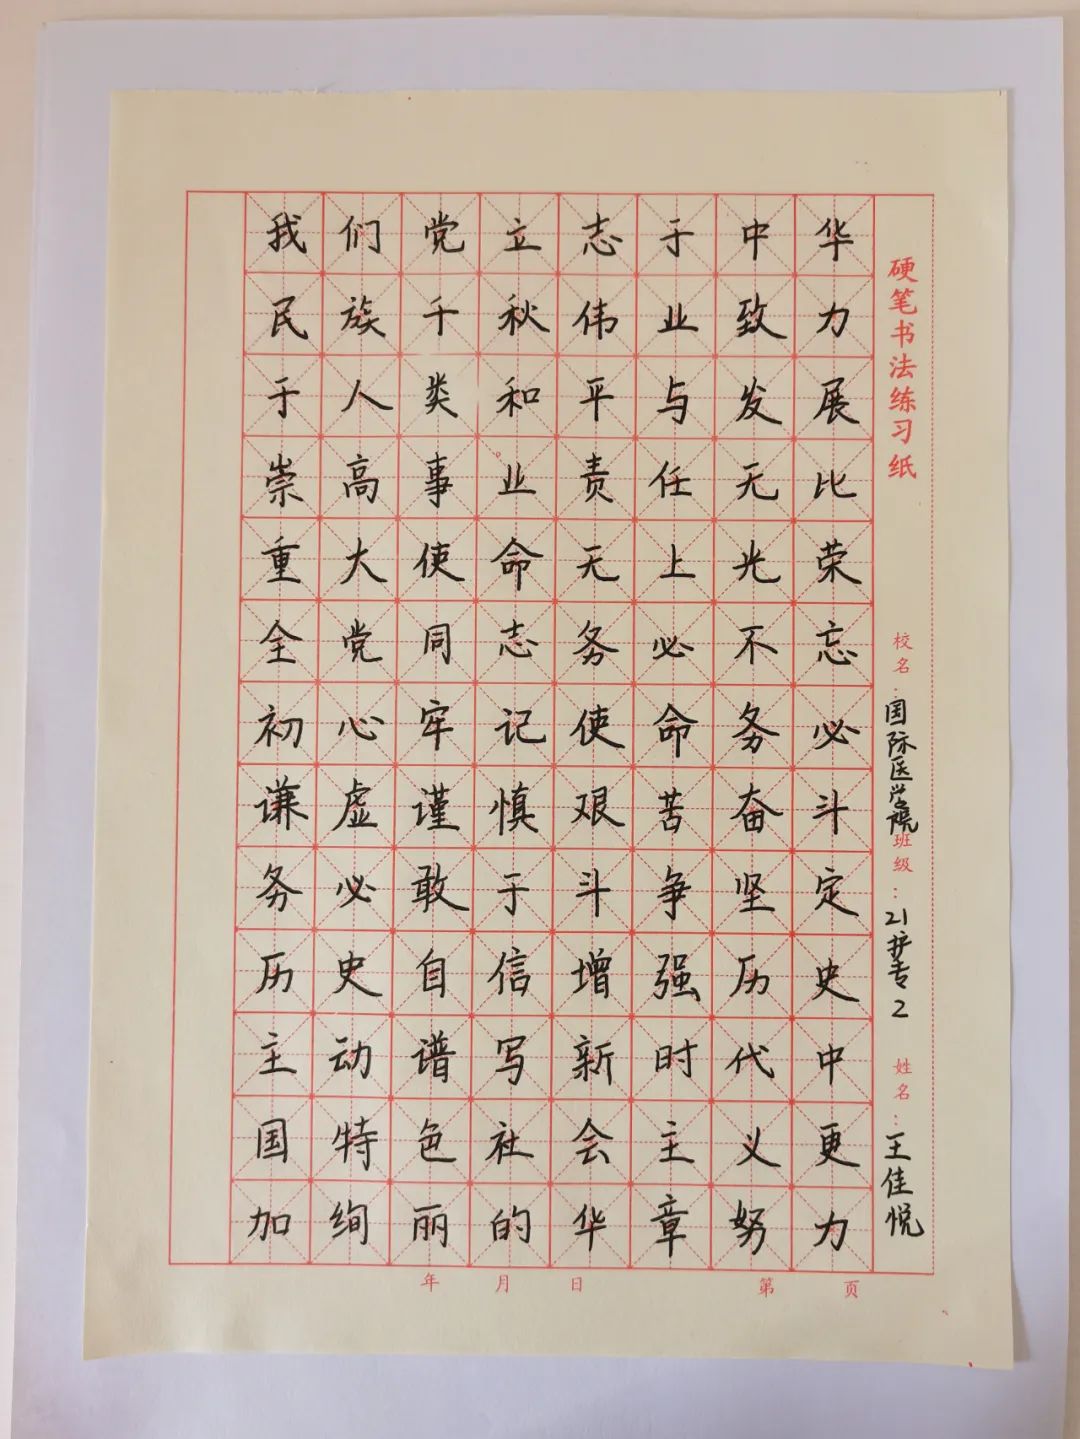 我们党立志于中华
民族千秋伟业致力
于人类和平与发展
崇高事业责任无比
重大使命无上光荣
全党同志务必不忘
初心牢记使命务必
谦虚谨慎艰苦奋斗
务必敢于斗争坚定
历史自信增强历史
主动谱写新时代中
国特色社会主义更
加绚丽的华章努力
硬笔书法练习纸
校名:国际医学院
班级:21护专2
姓名:王佳悦
年 月 日 第 页